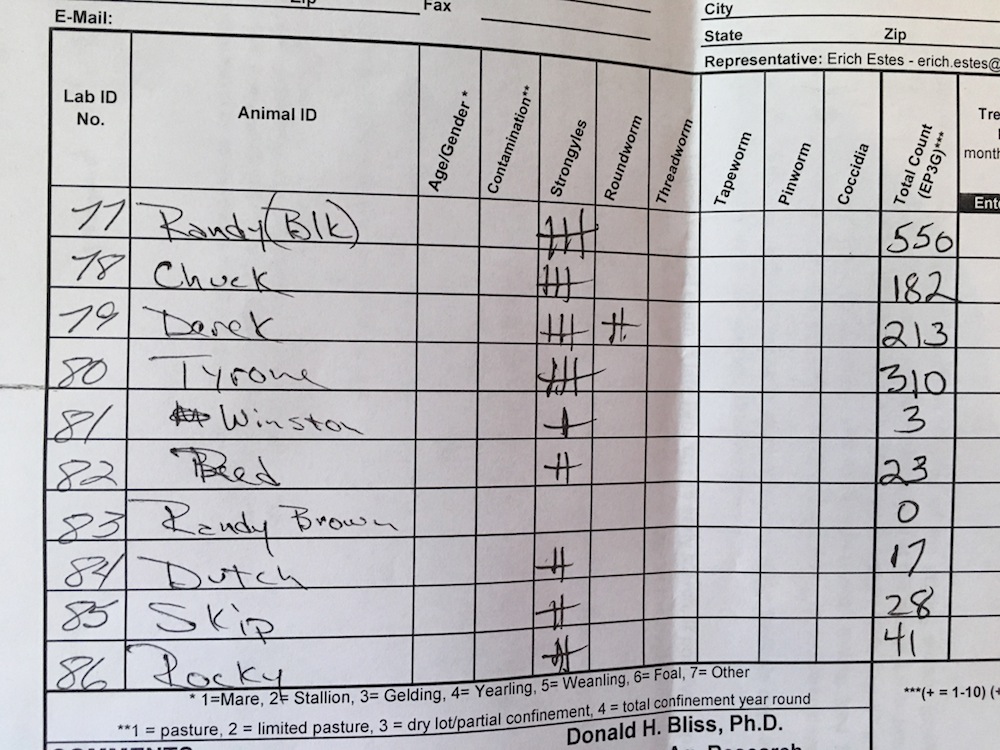 Zip Fax
City
E-Mail:
State Zip
Representative: Erich Estes - erich.estes@
Lab ID No. Animal ID Age/Gender * Contamination** Strongyles Roundworm Threadworm Tapeworm Pinworm Coccidia Total Count (EP3G)*** Tre
month
Ente
77 Randy (Blk) ++++ 550
78 Chuck +++ 182
79 Derek +++ ++ 213
80 Tyrone ++++ 310
81 Winston + 3
82 Reed ++ 23
83 Randy Brown 0
84 Dutch ++ 17
85 Skip ++ 28
86 Rocky ++ 41
* 1=Mare, 2= Stallion, 3= Gelding, 4= Yearling, 5= Weanling, 6= Foal, 7= Other
**1 = pasture, 2 = limited pasture, 3 = dry lot/partial confinement, 4 = total confinement year round
***(+ = 1-10) (+
Donald H. Bliss, Ph.D.
COMMENTS
Ag. Research